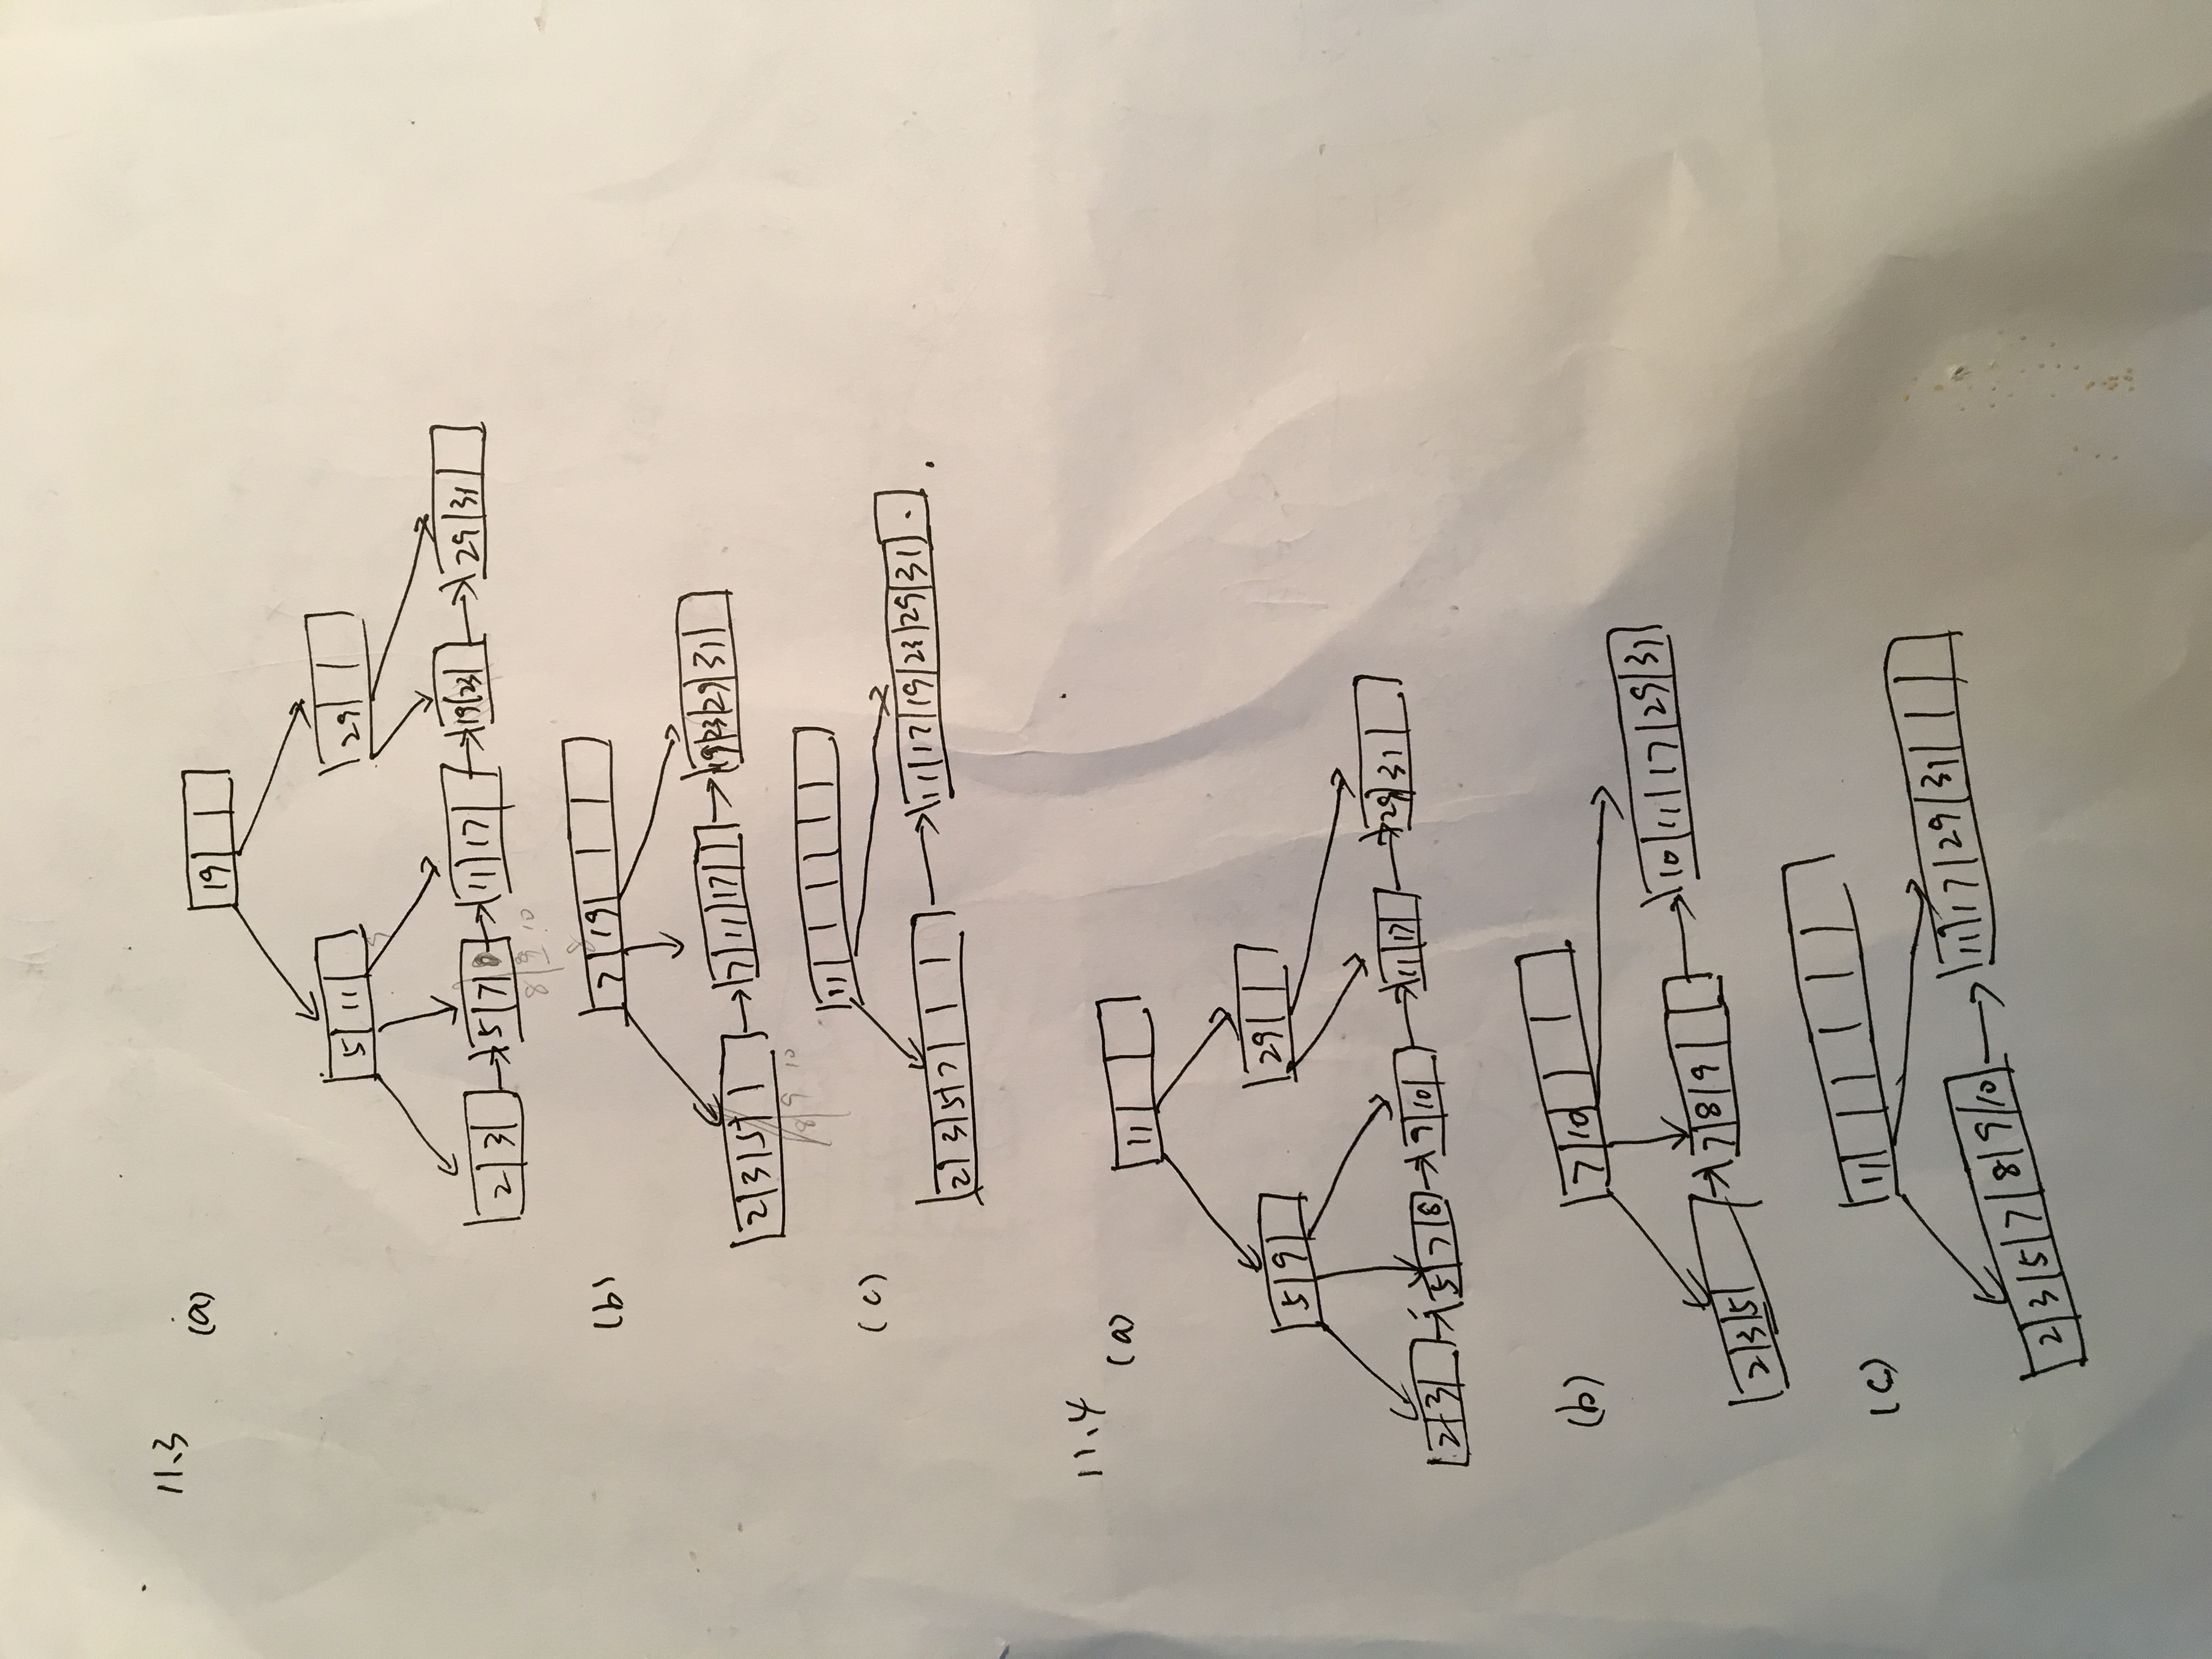 11.3
(a)
19
5 11
29
2 3
5 7
11 17
19 23
29 31
8 9 10
(b)
7 19
2 3 5
7 11 17
19 23 29 31
8 9 10
(c)
11
2 3 5 7
11 17 19 23 29 31
11.4
(a)
11
5 9
29
2 3
5 7 8
9 10
11 17
29 31
(b)
7 10
2 3 5
7 8 9
10 11 17 29 31
(c)
11
2 3 5 7 8 9 10
11 17 29 31